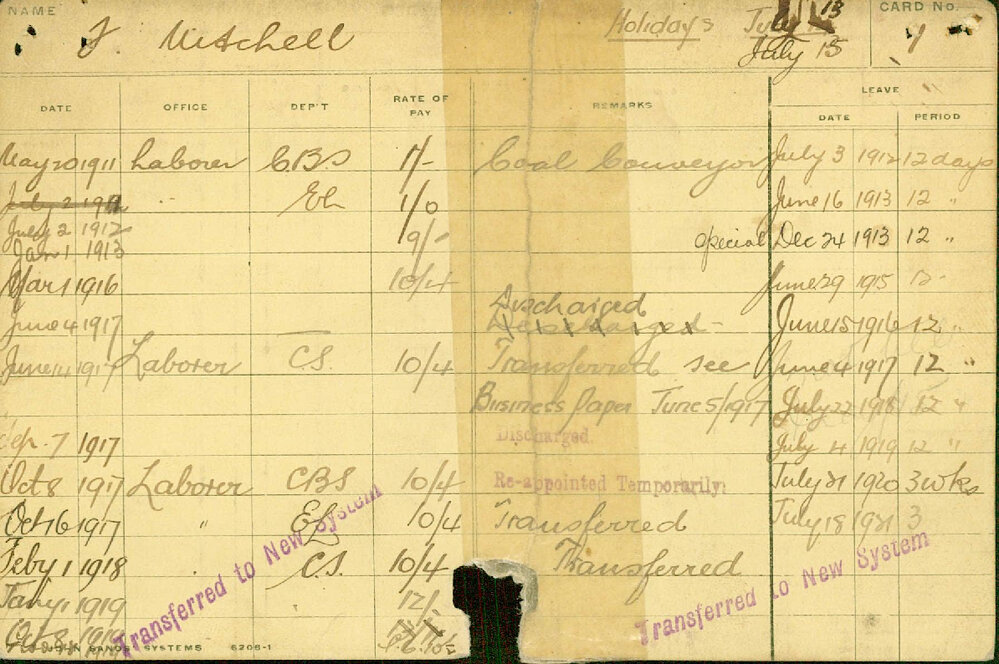 NAME J. Mitchell Holidays July 13 CARD No. 9
July 15
LEAVE
DATE OFFICE DEP'T RATE OF PAY REMARKS DATE PERIOD
May 20 1911 Laborer C.B.S 1/- Coal Conveyor July 3 1912 12 days
July 2 1912 " El 1/0 June 16 1913 12 "
July 2 1912
Jan 1 1913 9/- special Dec 24 1913 12 "
Mar 1 1916 10/4 June 29 1915 12
Discharged
June 4 1917 Discharged June 15 1916 12 "
June 14 1917 Laborer C.S. 10/4 Transferred see June 4 1917 12 "
Business Paper June 5/1917 July 22 1918 12 "
Sep. 7 1917 Discharged. July 4 1919 12 "
Oct 8 1917 Laborer CBS 10/4 Re-appointed Temporarily. July 21 1920 3 wks
Oct 16 1917 " El 10/4 Transferred July 18 1921 3
Feby 1 1918 " C.S. 10/4 Transferred
Jany 1 1919 12/-
Oct 8 1919
Transferred to New System
Transferred to New System
JOHN SANDS SYSTEMS 6206-1